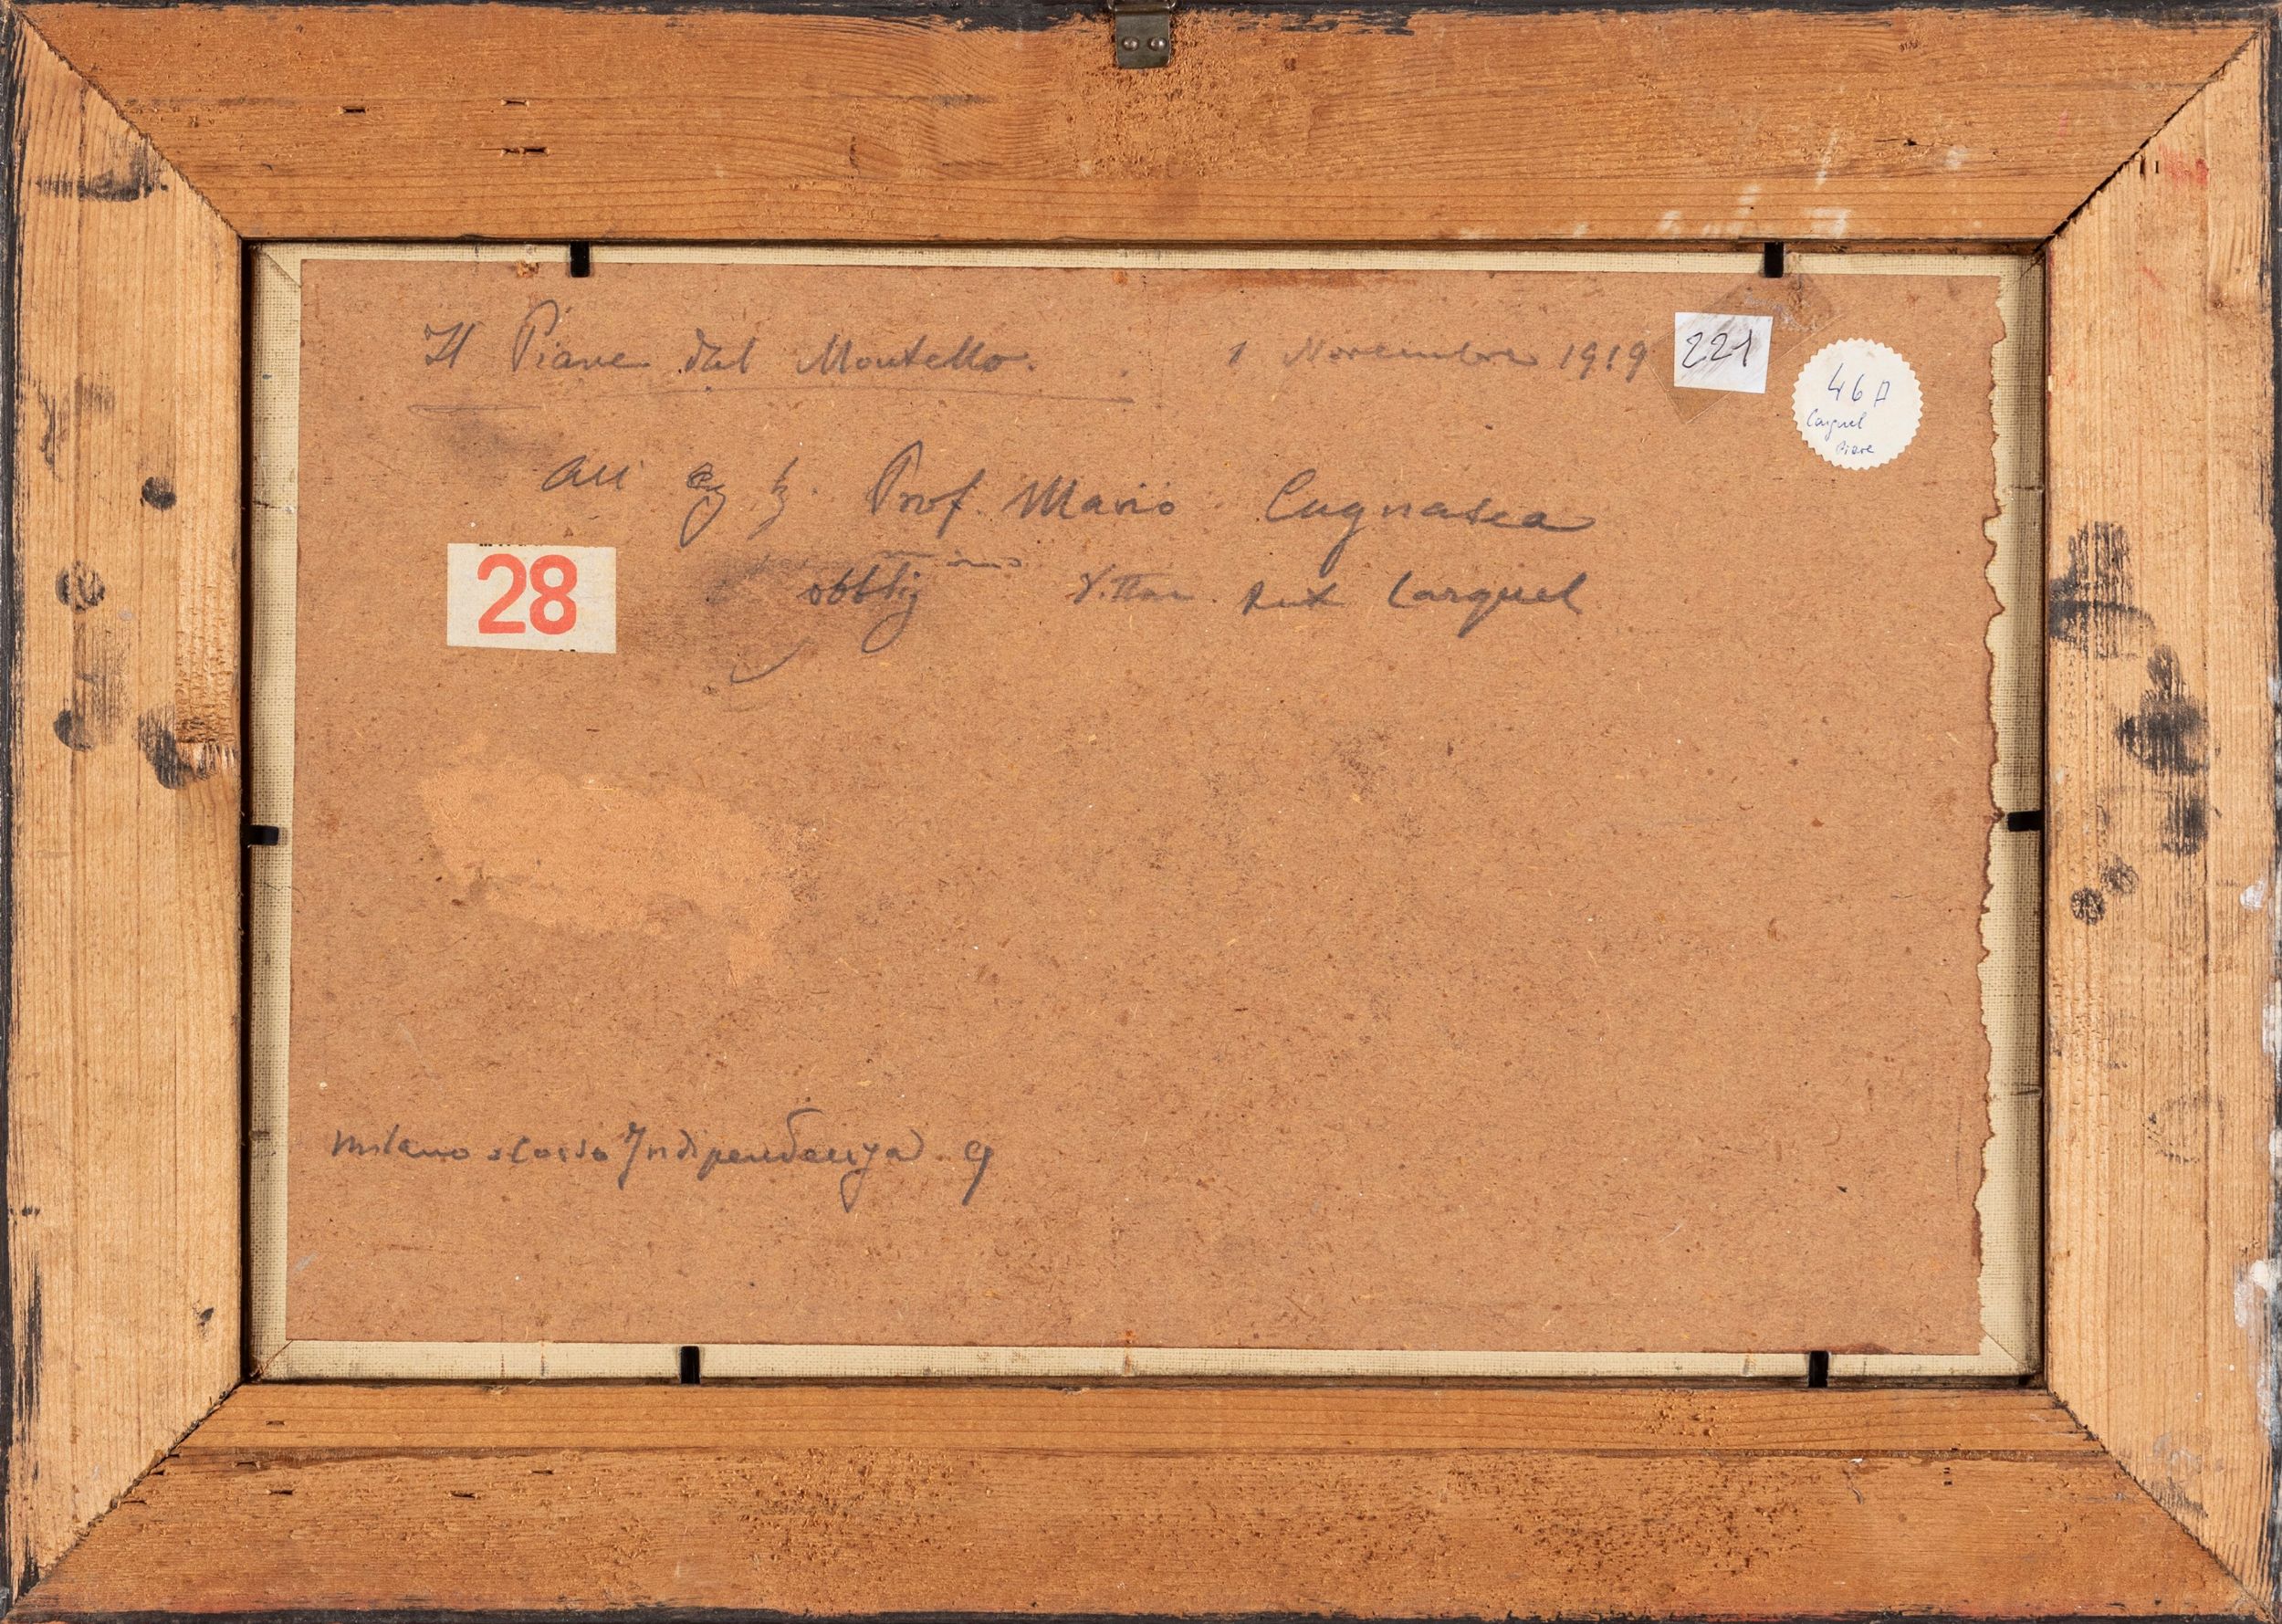 Il Piave dal Montello. 1 Novembre 1919
221
46 A
Carguel
Piave
All' Prof. Mario Cugnasca
28
obblig mo Vittore Ant Carguel
Milano Corso Indipendenza 9